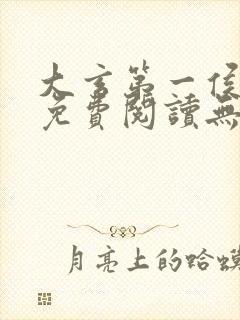 大言第一侯
免費閱讀無
月亮上的哈蟆